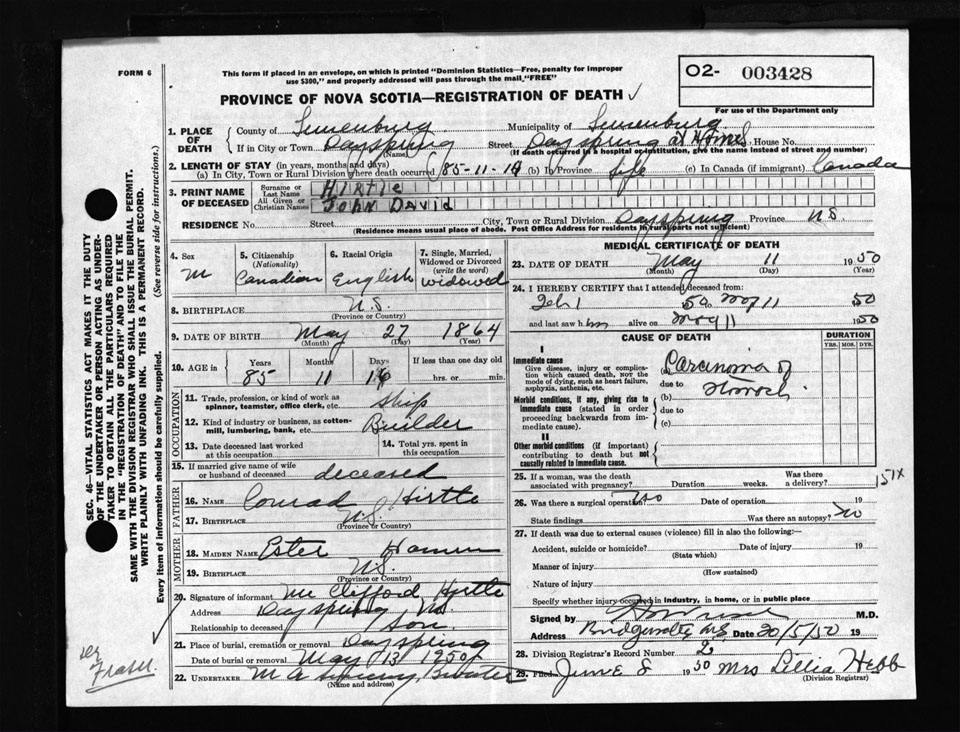 FORM 6
This form if placed in an envelope, on which is printed "Dominion Statistics—Free, penalty for improper
use $300," and properly addressed will pass through the mail "FREE"
O2- 003428
PROVINCE OF NOVA SCOTIA—REGISTRATION OF DEATH ✓
For use of the Department only
1. PLACE OF DEATH { County of Lunenburg Municipality of Lunenburg
If in City or Town Dayspring (Name) Street Dayspring at Home, House No.
(If death occurred in a hospital or institution, give the name instead of street and number)
2. LENGTH OF STAY (in years, months and days)
(a) In City, Town or Rural Division where death occurred 85-11-14 (b) In Province Life (c) In Canada (if immigrant) Canada
3. PRINT NAME OF DECEASED { Surname or Last Name HIRTLE
All Given or Christian Names JOHN DAVID
RESIDENCE No. Street City, Town or Rural Division Dayspring Province N.S.
(Residence means usual place of abode. Post Office Address for residents in rural parts not sufficient)
4. Sex M
5. Citizenship (Nationality) Canadian
6. Racial Origin English
7. Single, Married, Widowed or Divorced (write the word) widowed
8. BIRTHPLACE N.S. (Province or Country)
9. DATE OF BIRTH May (Month) 27 (Day) 1864 (Year)
10. AGE in { Years 85 Months 11 Days 14 If less than one day old hrs. or min.
OCCUPATION
11. Trade, profession, or kind of work as spinner, teamster, office clerk, etc. Ship
12. Kind of industry or business, as cotton-mill, lumbering, bank, etc. Builder
13. Date deceased last worked at this occupation
14. Total yrs. spent in this occupation
15. If married give name of wife or husband of deceased deceased
FATHER
16. NAME Conrad Hirtle
17. BIRTHPLACE N.S. (Province or Country)
MOTHER
18. MAIDEN NAME Ester
19. BIRTHPLACE N.S. (Province or Country)
20. Signature of informant Mr Clifford Hirtle
Address Dayspring N.S.
Relationship to deceased Son
21. Place of burial, cremation or removal Dayspring
Date of burial or removal May 13 1950
22. UNDERTAKER
(Name and address)
MEDICAL CERTIFICATE OF DEATH
23. DATE OF DEATH May (Month) 11 (Day) 1950 (Year)
24. I HEREBY CERTIFY that I attended deceased from:
Feb 1 50 to May 11 1950
and last saw him alive on May 11 1950
CAUSE OF DEATH
DURATION
YRS. MOS. DYS.
I
Immediate cause
Give disease, injury or complication which caused death, not the mode of dying, such as heart failure, asphyxia, asthenia, etc.
(a) Carcinoma of
due to Stomach
Morbid conditions, if any, giving rise to immediate cause (stated in order proceeding backwards from immediate cause).
(b)
due to
(c)
II
Other morbid conditions (if important) contributing to death but not causally related to immediate cause.
25. If a woman, was the death associated with pregnancy? Duration weeks. Was there a delivery?
151X
26. Was there a surgical operation? No Date of operation 19
State findings Was there an autopsy? No
27. If death was due to external causes (violence) fill in also the following:—
Accident, suicide or homicide? (State which) Date of injury 19
Manner of injury (How sustained)
Nature of injury
Specify whether injury occurred in industry, in home, or in public place
Signed by M.D.
Address Bridgewater N.S. Date 30/5/50 19
28. Division Registrar's Record Number
29. Filed June 8 1950 Mrs Lillia Hebb
(Division Registrar)
SEC. 46—VITAL STATISTICS ACT MAKES IT THE DUTY
OF THE UNDERTAKER OR PERSON ACTING AS UNDER-
TAKER TO OBTAIN ALL THE PARTICULARS REQUIRED
IN THE "REGISTRATION OF DEATH" AND TO FILE THE
SAME WITH THE DIVISION REGISTRAR WHO SHALL ISSUE THE BURIAL PERMIT.
WRITE PLAINLY WITH UNFADING INK. THIS IS A PERMANENT RECORD.
Every item of information should be carefully supplied. (See reverse side for instructions.)